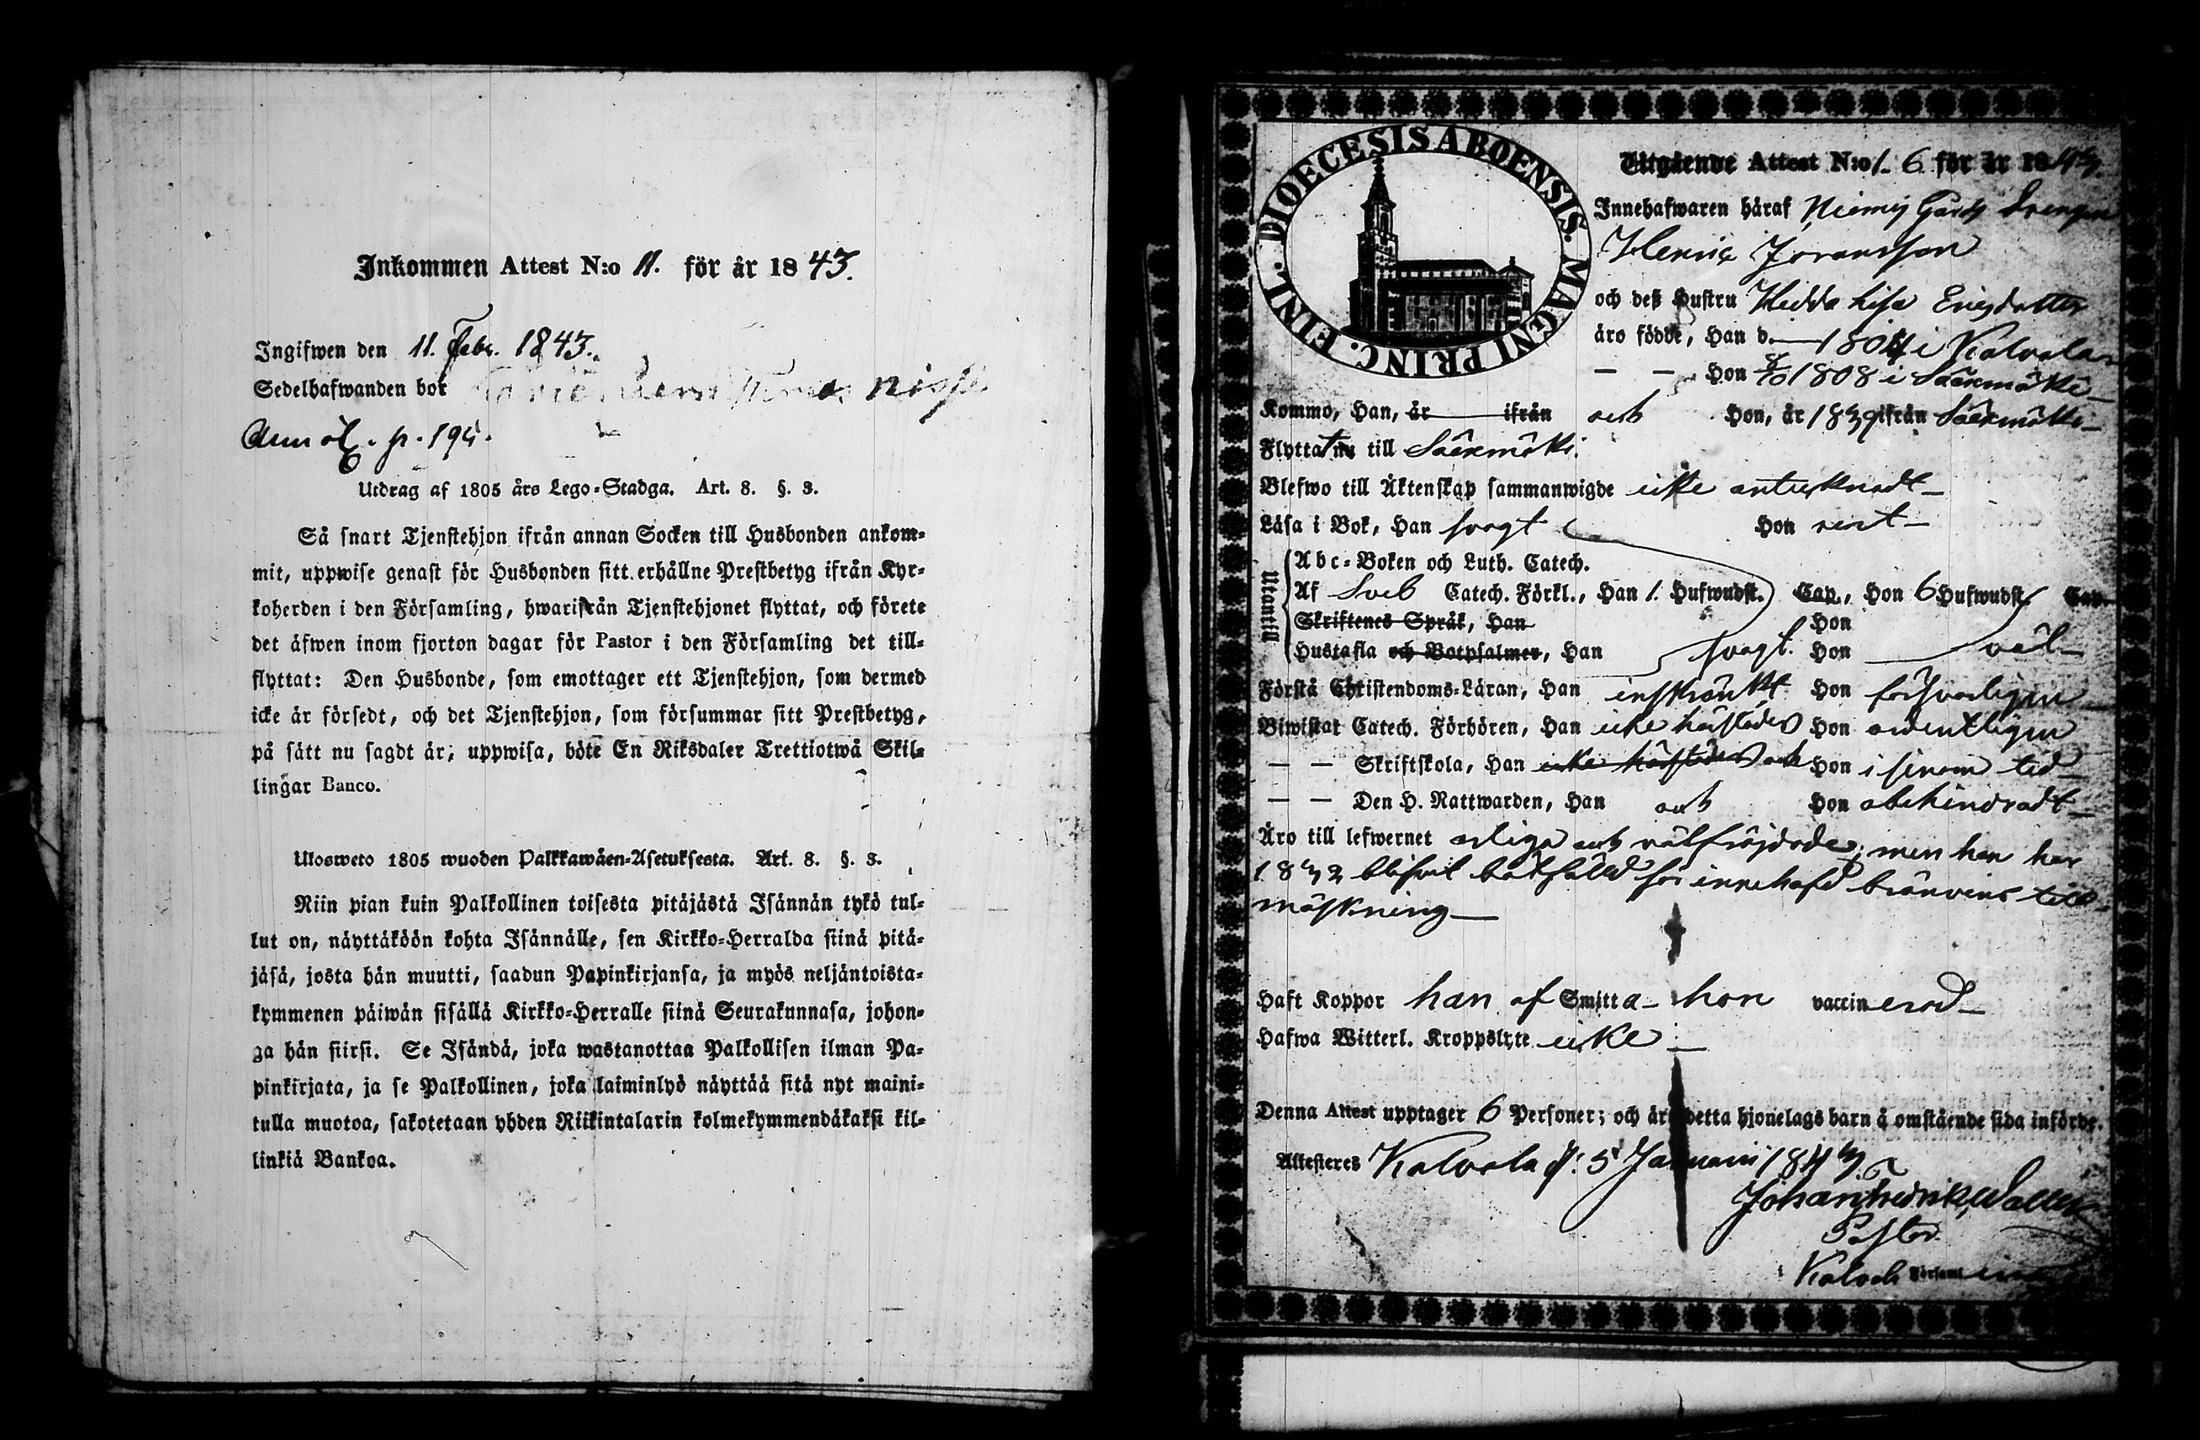 Inkommen Attest N:o 11. för år 1843.
Ingifwen den 11. Febr. 1843.
Sedelhafwanden bor
p. 194.
Utdrag af 1805 års Lego-Stadga. Art. 8. §. 3.
Så snart Tjenstehjon ifrån annan Socken till Husbonden ankom-
mit, uppwise genast för Husbonden sitt erhållne Prestbetyg ifrån Kyr-
koherden i den Församling, hwarifrån Tjenstehjonet flyttat, och förete
det äfwen inom fjorton dagar för Pastor i den Församling det till-
flyttat: Den Husbonde, som emottager ett Tjenstehjon, som dermed
icke är försedt, och det Tjenstehjon, som försummar sitt Prestbetyg,
på sätt nu sagdt är, uppwisa, böte En Riksdaler Trettiotwå Skil-
lingar Banco.
Ulosweto 1805 wuoden Palkkawäen-Asetuksesta. Art. 8. §. 3.
Niin pian kuin Palkollinen toisesta pitäjästä Isännän tykö tul-
lut on, näyttäköön kohta Isännälle, sen Kirkko-Herralda siinä pitä-
jäsä, josta hän muutti, saadun Papinkirjansa, ja myös neljäntoista-
kymmenen päiwän sisällä Kirkko-Herralle siinä Seurakunnasa, johon-
ga hän siirsi. Se Isändä, joka wastanottaa Palkollisen ilman Pa-
pinkirjata, ja se Palkollinen, joka laiminlyö näyttää sitä nyt maini-
tulla muotoa, sakotetaan yhden Riikintalarin kolmekymmendäkaksi kil-
linkiä Bankoa.
DIOECESIS ABOENSIS. MAGNI PRINC. FINL.
Utgående Attest N:o 1. 6 för år 1843.
Innehafwaren häraf Niemis Gårds Drengen
Henric Jöransson
och deß Hustru Hedda Lisa Ericsdotter
äro födde, Han d. — 1804 i Kalvola
— — Hon 8/10 1808 i Sääxmäki
Kommo, Han, år ifrån och Hon, år 1839 ifrån Sääxmäki
Flytta nu till Sääxmäki.
Blefwo till Äktenskap sammanwigde icke antecknadt
Läsa i Bok, Han svagt Hon rent
Utantill
Abc-Boken och Luth. Catech.
Af Sveb Catech. Förkl., Han 1. Hufwudst. Cap., Hon 6 Hufwudst. Cap.
Skriftenes Språk, Han Hon
Hustafla och Botpsalmer, Han svagt. Hon väl
Förstå Christendoms-Läran, Han inskränkt Hon försvarligen
Biwistat Catech. Förhören, Han icke härstädes Hon ordentligen
— — Skriftskola, Han icke härstädes och Hon i sinom tid
— — Den H. Nattwarden, Han och Hon obehindradt
Äro till lefwernet ärliga och välfrejdade, men han har
1842 blifvit bötfälld för innehafd bränvins till-
mäskning
Haft Koppor han af Smitta — hon vaccinerad
Hafwa Witterl. Kroppslyte icke
Denna Attest upptager 6 Personer; och äro detta hjonelags barn å omstående sida införde.
Attesteras Kalvola d. 5 Januarii 1843
Johan Walter
Pastor
Kalvola Församl